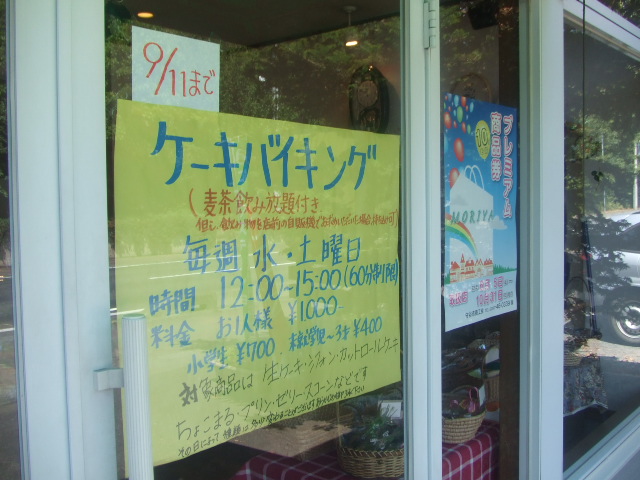 9/11まで
ケーキバイキング
(麦茶飲み放題付き
毎週 水・土曜日
時間 12:00~15:00(60分制限)
料金 お1人様 ¥1,000
小学生 ¥700 ~3才 ¥400
対象商品は 生ケーキ・シフォン・カットロールケーキ
ちょこまる・プリン・ゼリー・スコーンなどです
プレミアム
商品券
10
MORIYA
10月31日